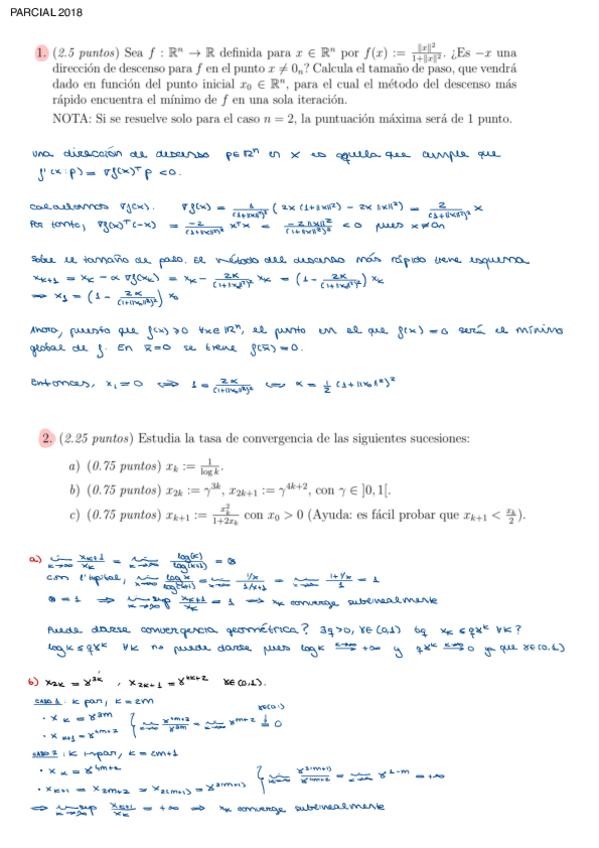 PARCIAL 2018
1. (2.5 puntos) Sea f : ℝⁿ → ℝ definida para x ∈ ℝⁿ por f(x) := ‖x‖²/(1+‖x‖²). ¿Es −x una
dirección de descenso para f en el punto x ≠ 0ₙ? Calcula el tamaño de paso, que vendrá
dado en función del punto inicial x₀ ∈ ℝⁿ, para el cual el método del descenso más
rápido encuentra el mínimo de f en una sola iteración.
NOTA: Si se resuelve solo para el caso n = 2, la puntuación máxima será de 1 punto.
Una dirección de descenso p∈ℝⁿ en x es aquella que cumple que
f'(x;p) = ∇f(x)ᵀp < 0.
Calculamos ∇f(x). ∇f(x) = 1/(1+‖x‖²)² (2x(1+‖x‖²) − 2x‖x‖²) = 2/(1+‖x‖²)² x
Por tanto, ∇f(x)ᵀ(−x) = −2/(1+‖x‖²)² xᵀx = −2‖x‖²/(1+‖x‖²)² < 0 pues x≠0ₙ
Sobre el tamaño de paso. El método del descenso más rápido tiene esquema
xₖ₊₁ = xₖ − α ∇f(xₖ) = xₖ − 2α/(1+‖xₖ‖²)² xₖ = (1 − 2α/(1+‖xₖ‖²)²) xₖ
⇒ x₁ = (1 − 2α/(1+‖x₀‖²)²) x₀
Ahora, puesto que f(x) ≥ 0 ∀x∈ℝⁿ, el punto en el que f(x) = 0 será el mínimo
global de f. En x̄=0 se tiene f(x̄) = 0.
Entonces, x₁ = 0 ⟺ 1 = 2α/(1+‖x₀‖²)² ⟺ α = ½ (1+‖x₀‖²)²
2. (2.25 puntos) Estudia la tasa de convergencia de las siguientes sucesiones:
a) (0.75 puntos) xₖ := 1/log k.
b) (0.75 puntos) x₂ₖ := γ³ᵏ, x₂ₖ₊₁ := γ⁴ᵏ⁺², con γ ∈ ]0,1[.
c) (0.75 puntos) xₖ₊₁ := xₖ²/(1+2xₖ) con x₀ > 0 (Ayuda: es fácil probar que xₖ₊₁ < xₖ/2).
a) lim k→∞ xₖ₊₁/xₖ = lim k→∞ log(k)/log(k+1) = ⊛
Con l'Hôpital, lim x→∞ log x/log(x+1) = lim x→∞ (1/x)/(1/x+1) = lim x→∞ (1+1/x)/1 = 1
⊛ = 1 ⇒ lim sup k→∞ xₖ₊₁/xₖ = 1 ⇒ xₖ converge sublinealmente
Puede darse convergencia geométrica? ∃q>0, γ∈(0,1) tq xₖ ≤ qγᵏ ∀k?
log k ≤ qγᵏ ∀k no puede darse pues log k → +∞ y qγᵏ → 0 ya que γ∈(0,1)
b) x₂ₖ = γ³ᵏ, x₂ₖ₊₁ = γ⁴ᵏ⁺² γ∈(0,1).
CASO 1: k par, k = 2m
· xₖ = γ³ᵐ
· xₖ₊₁ = γ⁴ᵐ⁺² } lim m→∞ γ⁴ᵐ⁺²/γ³ᵐ = lim m→∞ γᵐ⁺² = 0 γ∈(0,1)
CASO 2: k impar, k = 2m+1
· xₖ = γ⁴ᵐ⁺²
· xₖ₊₁ = x₂ₘ₊₂ = x₂₍ₘ₊₁₎ = γ³⁽ᵐ⁺¹⁾ } lim m→∞ γ³⁽ᵐ⁺¹⁾/γ⁴ᵐ⁺² = lim m→∞ γ¹⁻ᵐ = +∞
⇒ lim sup k→∞ xₖ₊₁/xₖ = +∞ ⇒ xₖ converge sublinealmente